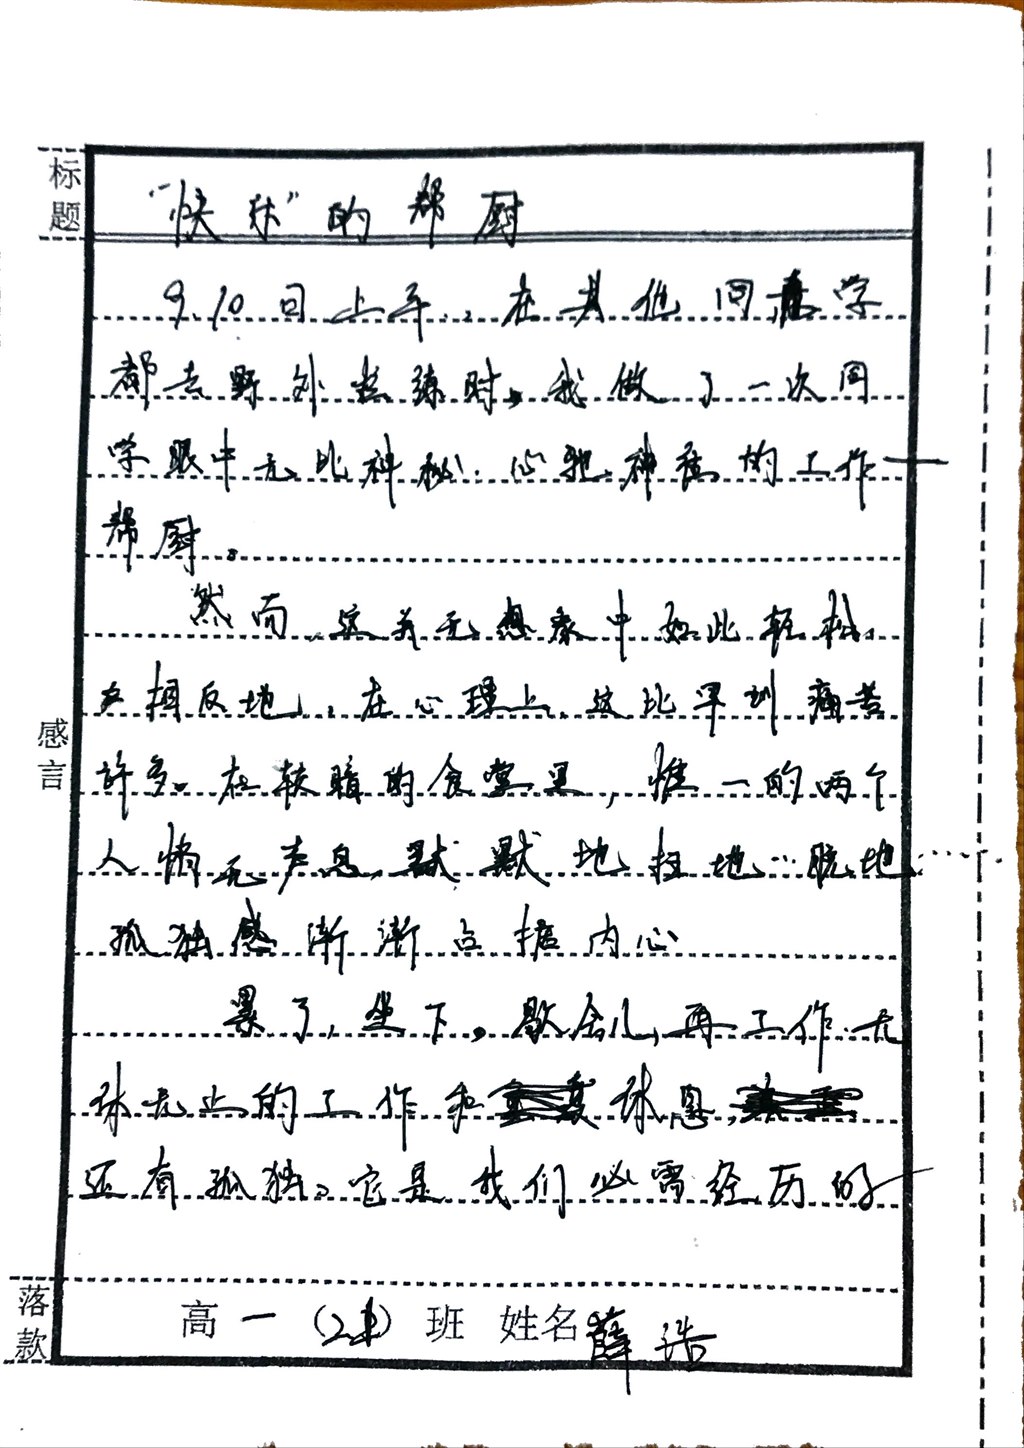 标题
“快乐”的帮厨
9.10日上午,在其他同学
都去野外拉练时,我做了一次同
学眼中无比神秘,心驰神往的工作—
帮厨。
然而,这并无想象中如此轻松。
相反地,在心理上,这比军训痛苦
许多。在较暗的食堂里,惟一的两个
人悄无声息,默默地扫地…脱地……
孤独感渐渐占据内心
感言
累了,坐下。歇会儿,再工作.无
休无止的工作和休息,
还有孤独。它是我们必需经历的
落款
高一(21)班 姓名薛浩